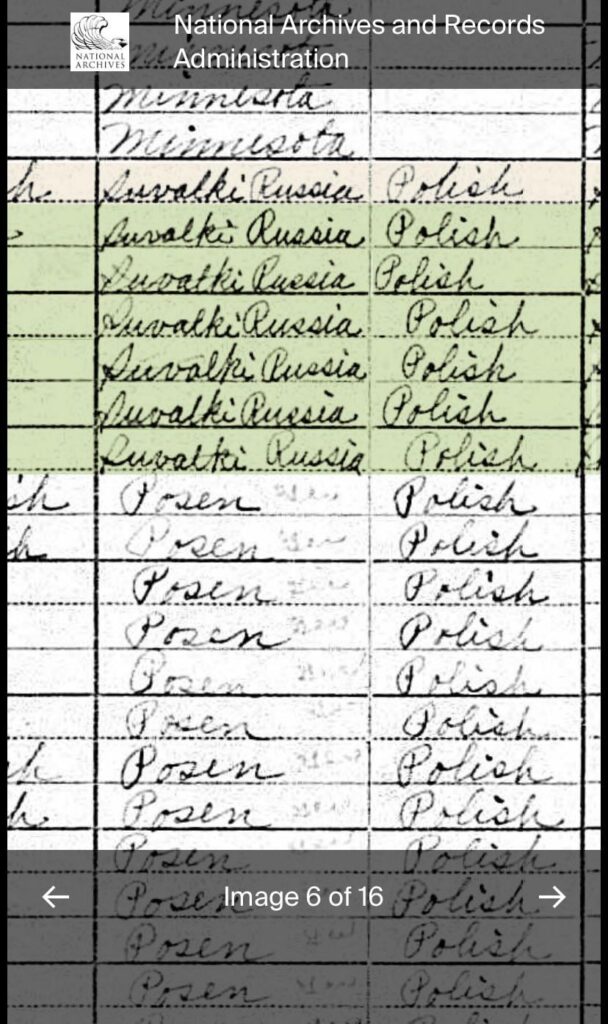 National Archives and Records
Administration
NATIONAL
ARCHIVES
Minnesota
Minnesota
Minnesota
Minnesota
h Suvalki Russia Polish
Suvalki Russia Polish
Suvalki Russia Polish
Suvalki Russia Polish
Suvalki Russia Polish
Suvalki Russia Polish
Suvalki Russia Polish
sh Posen Polish
h Posen Polish
Posen Polish
Posen Polish
Posen Polish
Posen Polish
sh Posen Polish
h Posen Polish
Posen Polish
← Image 6 of 16 →
Posen Polish
Posen Polish
Posen Polish